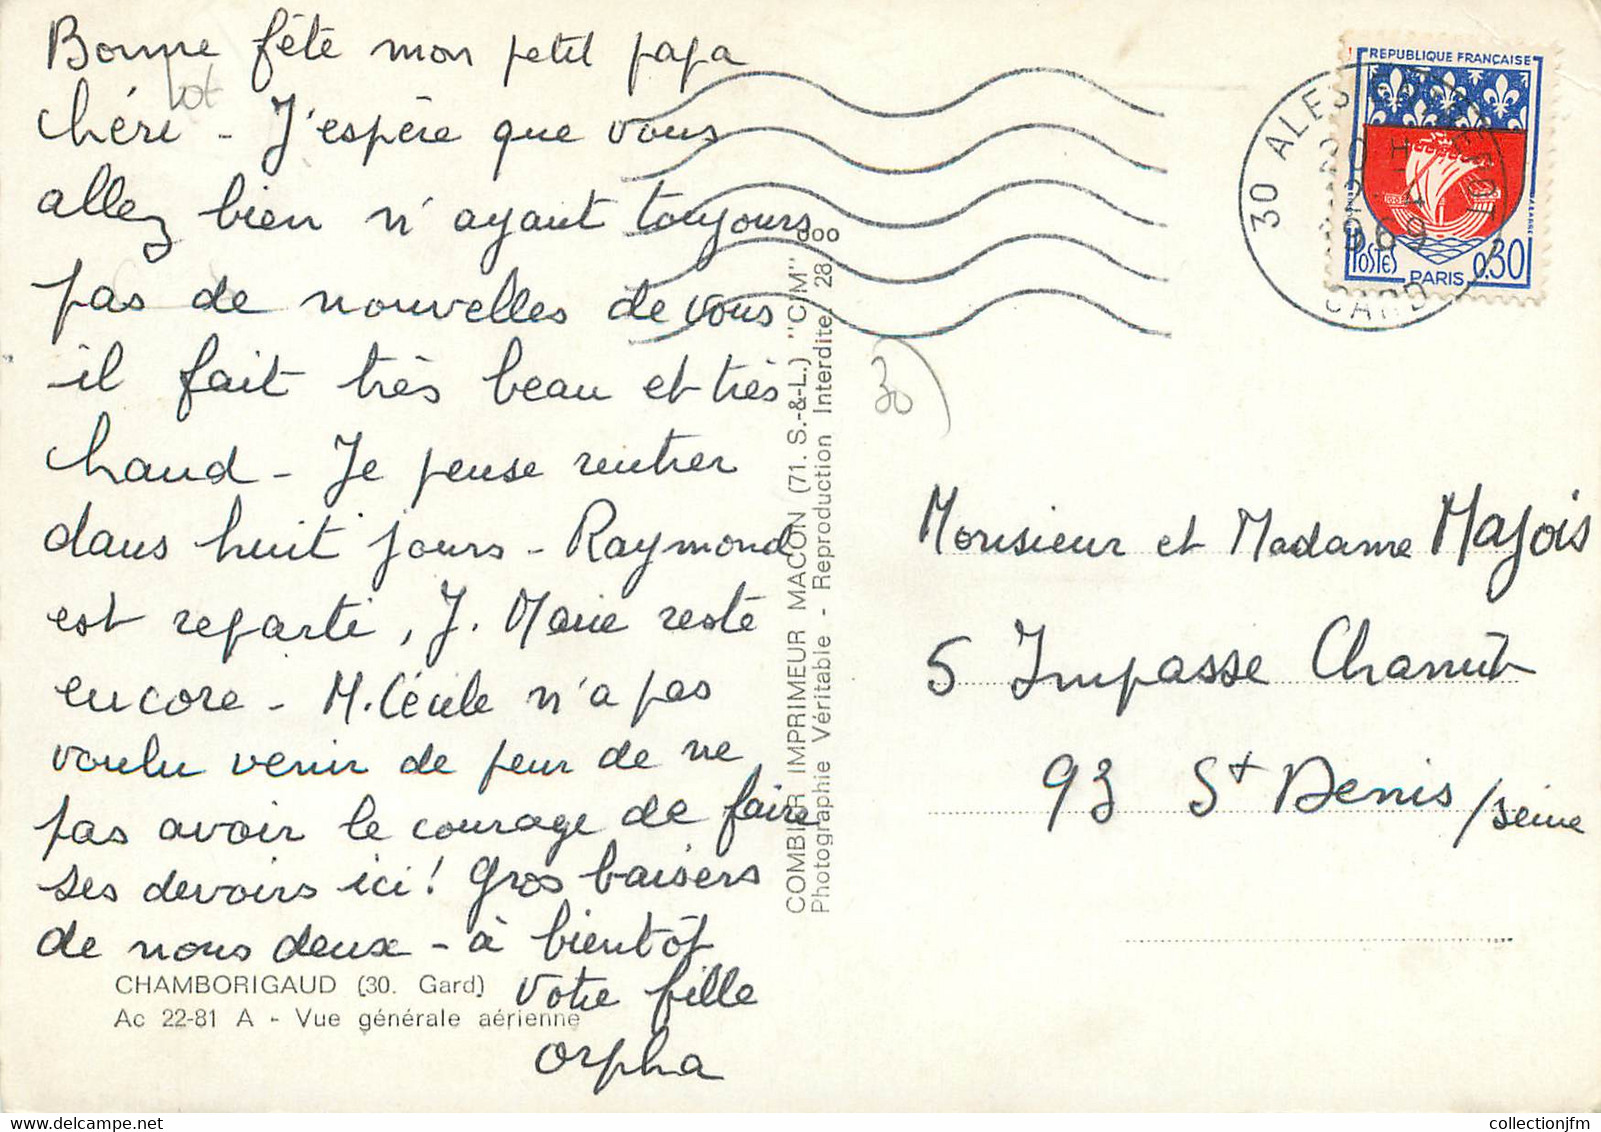 Bonne fête mon petit papa
chéri - J'espère que vous
allez bien n'ayant toujours
pas de nouvelles de vous
il fait très beau et très
chaud - Je pense rentrer
dans huit jours - Raymond
est reparti, J. Marie reste
encore - M. Cécile n'a pas
voulu venir de peur de ne
pas avoir le courage de faire
ses devoirs ici! Gros baisers
de nous deux - à bientôt
Votre fille
Orpha
CHAMBORIGAUD (30. Gard)
Ac 22-81 A - Vue générale aérienne
COMBIER IMPRIMEUR MACON (71. S.-&-L.) "CIM"
Photographie Véritable - Reproduction Interdite. 28
30
REPUBLIQUE FRANÇAISE
POSTES
PARIS
0,30
30 ALES
1969
GARD
Monsieur et Madame Majois
5 Impasse Chanut
93 St Denis /seine
collectionjfm